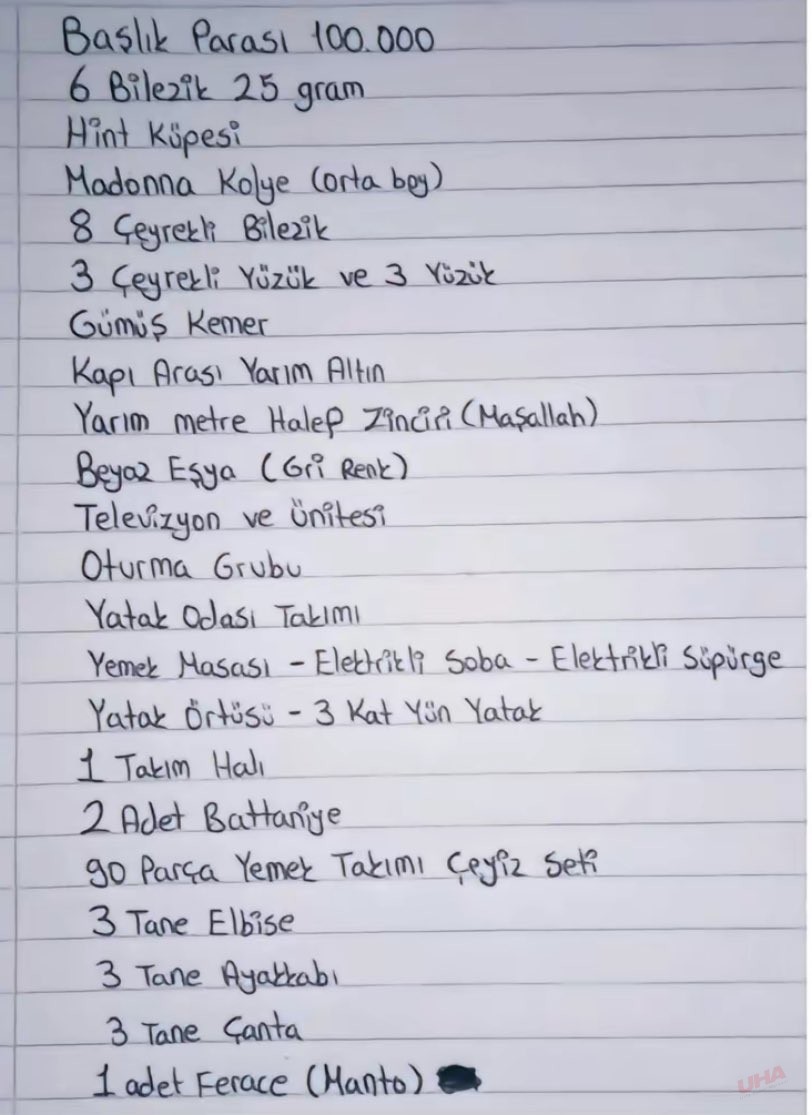 Başlık Parası 100.000
6 Bilezik 25 gram
Hint Küpesi
Madonna Kolye (orta boy)
8 Çeyrekli Bilezik
3 Çeyrekli Yüzük ve 3 Yüzük
Gümüş Kemer
Kapı Arası Yarım Altın
Yarım metre Halep Zinciri (Maşallah)
Beyaz Eşya (Gri Renk)
Televizyon ve Ünitesi
Oturma Grubu
Yatak Odası Takımı
Yemek Masası - Elektrikli Soba - Elektrikli Süpürge
Yatak Örtüsü - 3 Kat Yün Yatak
1 Takım Halı
2 Adet Battaniye
90 Parça Yemek Takımı Çeyiz Seti
3 Tane Elbise
3 Tane Ayakkabı
3 Tane Çanta
1 adet Ferace (Manto)
UHA